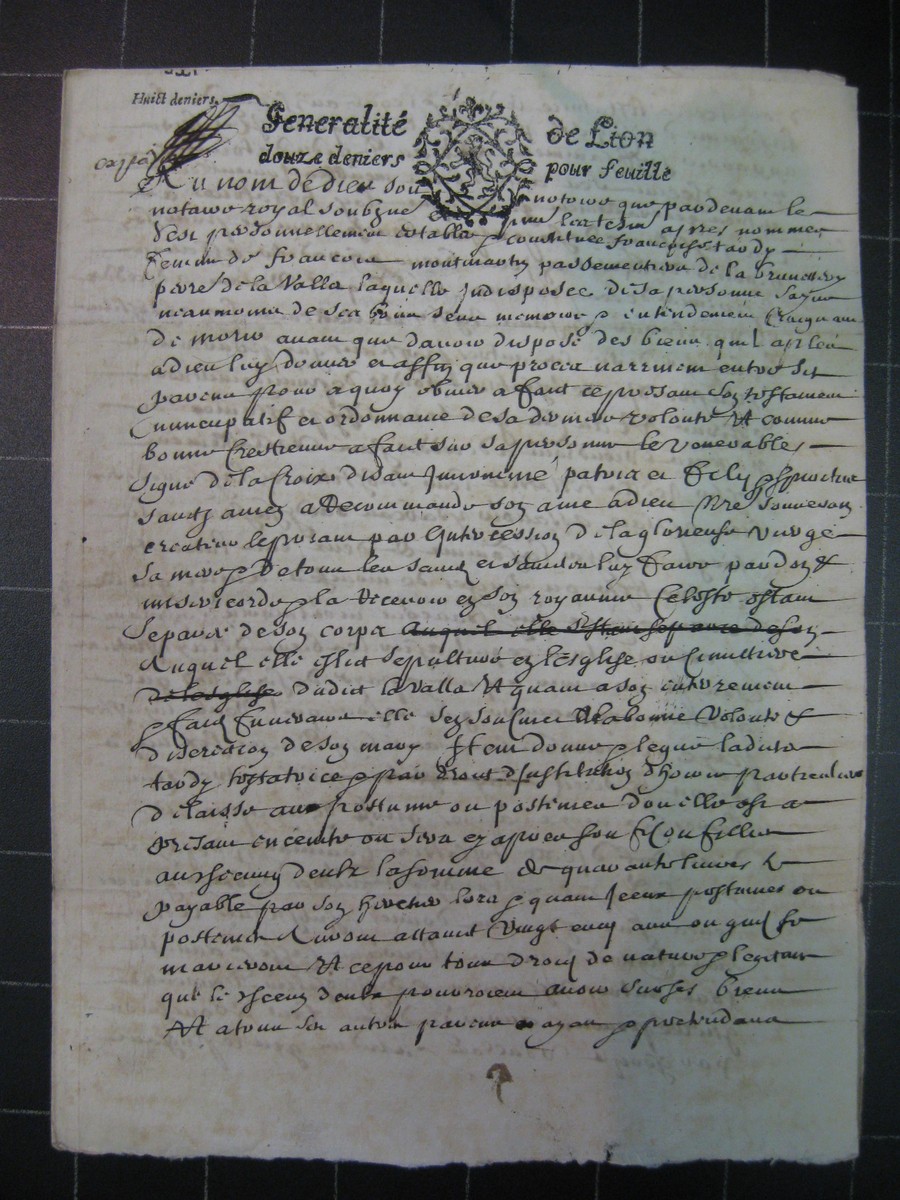 Huict deniers
Generalité de Lion
douze deniers pour feuille
Au nom de dieu soit notoire que pardevant le
notaire royal soubzigné et presents les tesmoings apres nommes
s'est personnellement establye & constituée françoise tardy
femme de françois montmartin passementier de la
pxxxe de la Valla laquelle indisposée de sa personne sayne
neanmoins de ses bons sens memoire & entendement craignant
de morir avant que d'avoir disposé des biens qu'il a pleu
a dieu luy donner et affin que procez n'arrivent entre ses
parens pour a quoy obvier a faict ce present son testament
nuncupatif et ordonnance de sa derniere volonté Et comme
bonne Crestienne a faict sur sa personne le venerable
signe de la Croix disant In nomine patris et filij & spiritus
sancti amen a Recommandé son ame a dieu nre souverain
createur le priant par l'intercession de la glorieuse vierge
sa mere & de tous les saincts et sainctes luy faire pardon &
misericorde & la Recevoir en son royaume Celeste estant
separée de son corps auquel elle estant separée de son
Auquel elle eslit sepulture en l'esglise ou Cimettiere
de lesglise dudict la Valla Et quant a son enterrement
& frais funeraires elle s'en soubmet A la bonne volonté &
discretion de son mary Item donne & legue ladicte
tardy testatrice & par droict d'institution d'hoirie particuliere
delaisse aux postume ou postumes dont elle est a
present enceinte ou sera cy apres soit filz ou filles
a ung chascung d'eulx la somme de quarante livres
payable par son heretier lors & quant iceux postumes ou
postumes Auront attainct vingt cinq ans ou qu'ilz se
marieront Et ce pour tous droictz de nature & legitime
que le chascung d'eulx pourroient avoir sur ses biens
Et a tous ses autres parens ayans & pretendans